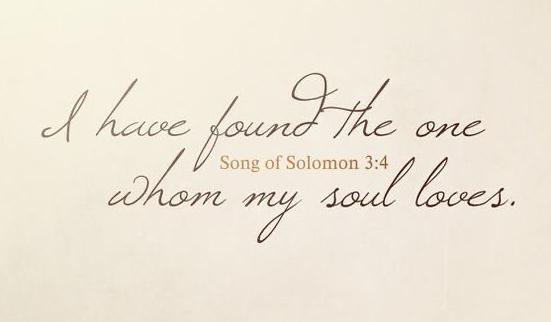 I have found the one
Song of Solomon 3:4
whom my soul loves.